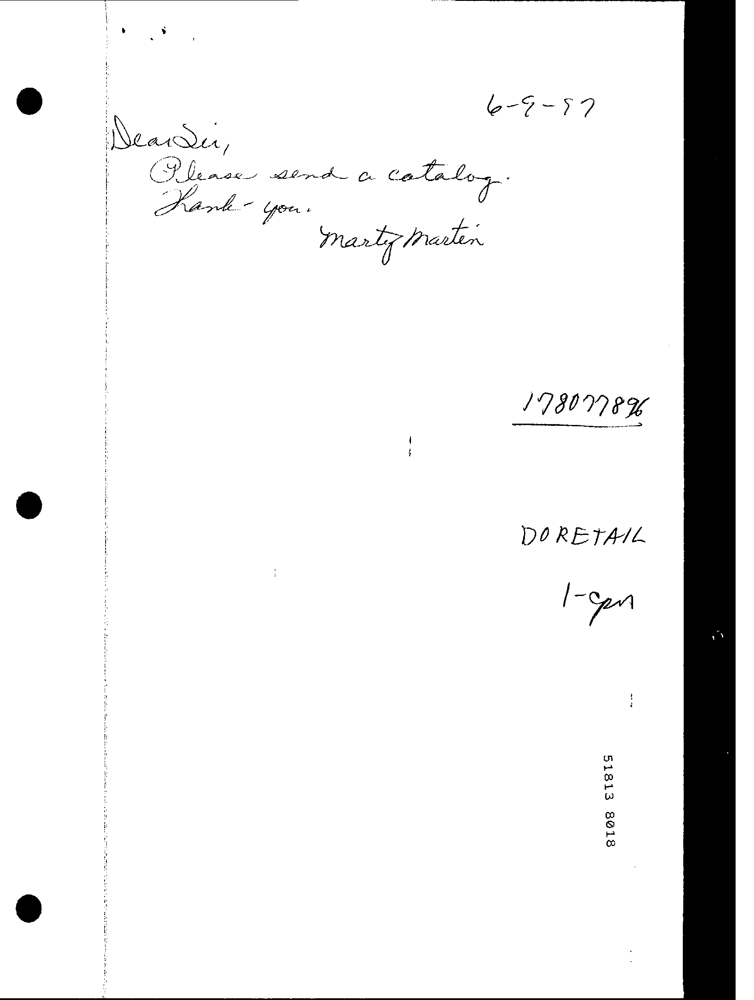 6-9-97
Dear Sir,
Please send a catalog.
Thank-you.
Marty Martin
178077896
DORETAIL
1-cpm
51813 8018